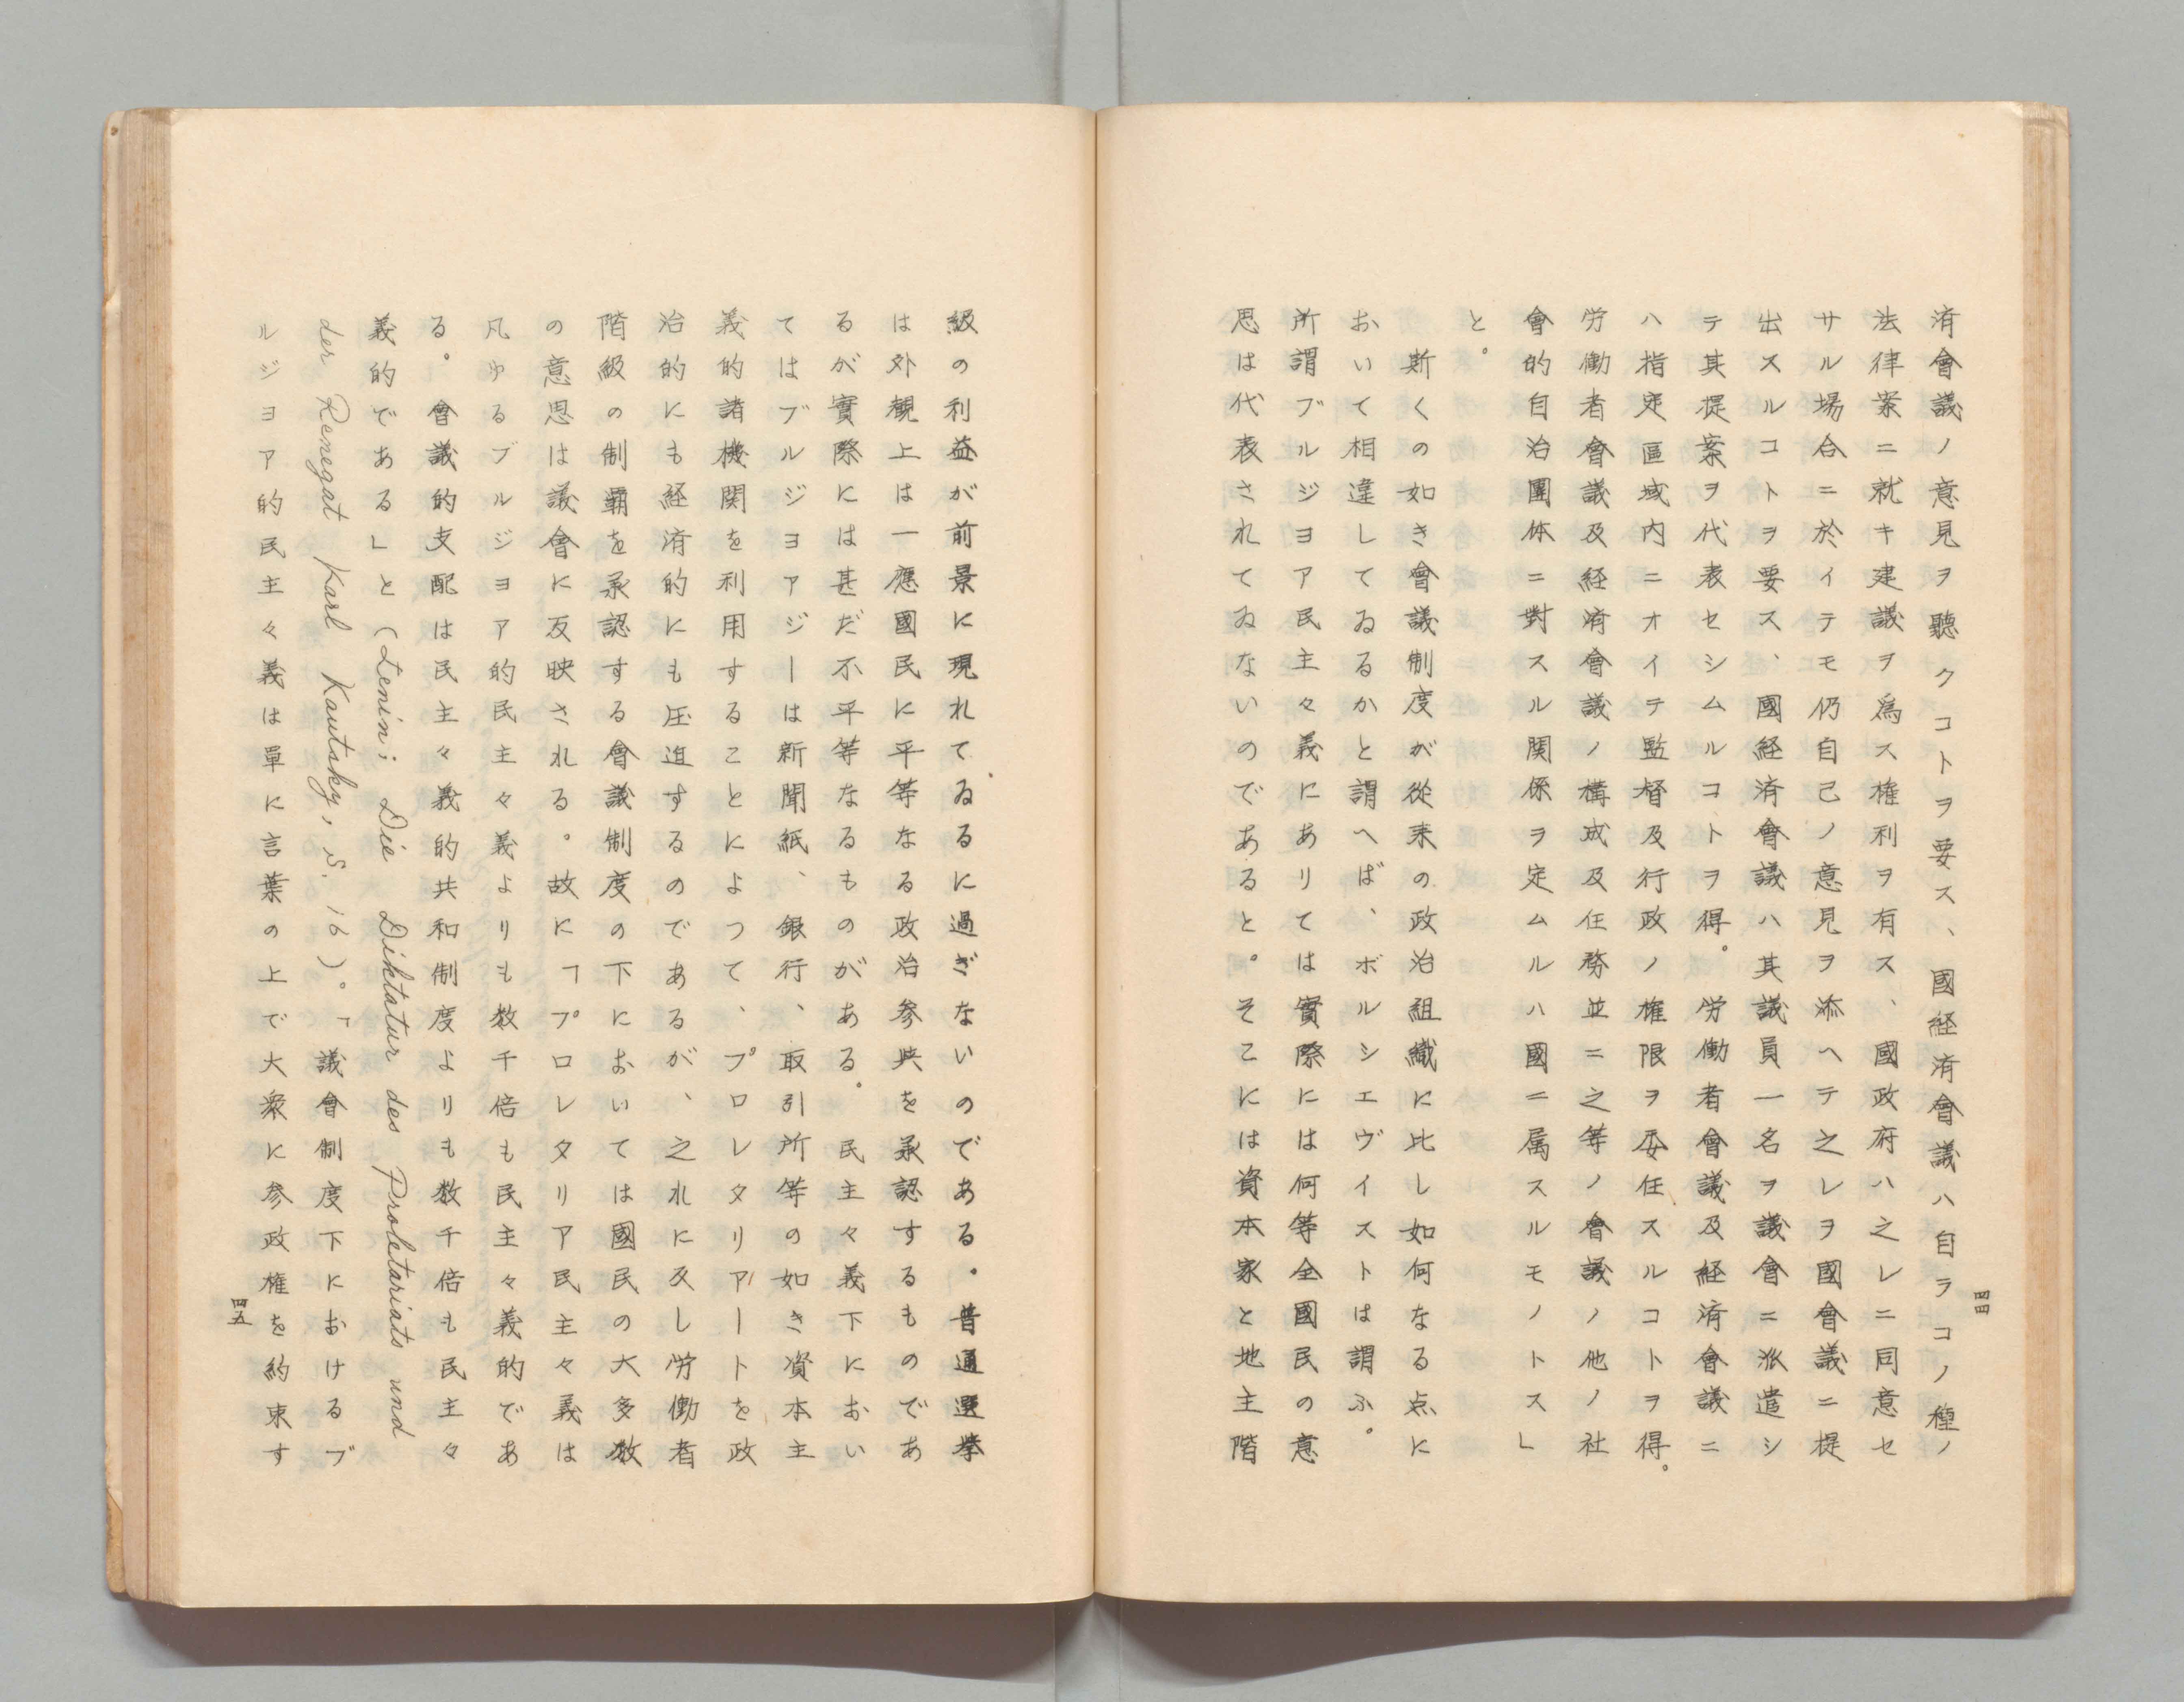 済會議ノ意見ヲ聽クコトヲ要ス、國経済會議ハ自ラコノ種ノ
法律案ニ就キ建議ヲ為ス権利ヲ有ス、國政府ハ之レニ同意セ
サル場合ニ於イテモ仍自己ノ意見ヲ添ヘテ之レヲ國會議ニ提
出スルコトヲ要ス、國経済會議ハ其議員一名ヲ議會ニ派遣シ
テ其提案ヲ代表セシムルコトヲ得。労働者會議及経済會議ニ
ハ指定區域内ニオイテ監督及行政ノ権限ヲ委任スルコトヲ得。
労働者會議及経済會議ノ構成及任務並ニ之等ノ會議ノ他ノ社
會的自治團体ニ對スル関係ヲ定ムルハ國ニ属スルモノトス」
と。
斯くの如き會議制度が從来の政治組織に比し如何なる点に
おいて相違してゐるかと謂へば、ボルシエヴイストは謂ふ。
所謂ブルジヨア民主々義にありては實際には何等全國民の意
思は代表されてゐないのであると。そこには資本家と地主階
四四
級の利益が前景に現れてゐるに過ぎないのである。普通選挙
は外観上は一應國民に平等なる政治参与を承認するものであ
るが實際には甚だ不平等なるものがある。民主々義下におい
てはブルジヨアジーは新聞紙、銀行、取引所等の如き資本主
義的諸機関を利用することによつて、プロレタリアートを政
治的にも経済的にも圧迫するのであるが、之れに反し労働者
階級の制覇を承認する會議制度の下においては國民の大多数
の意思は議會に反映される。故に「プロレタリア民主々義は
凡ゆるブルジヨア的民主々義よりも数千倍も民主々義的であ
る。會議的支配は民主々義的共和制度よりも数千倍も民主々
義的である」と（Lenin; Die Diktatur des Proletariats und
der Renegat Karl Kautsky, S. 16）。「議會制度下におけるブ
ルジヨア的民主々義は單に言葉の上で大衆に参政権を約束す
四五